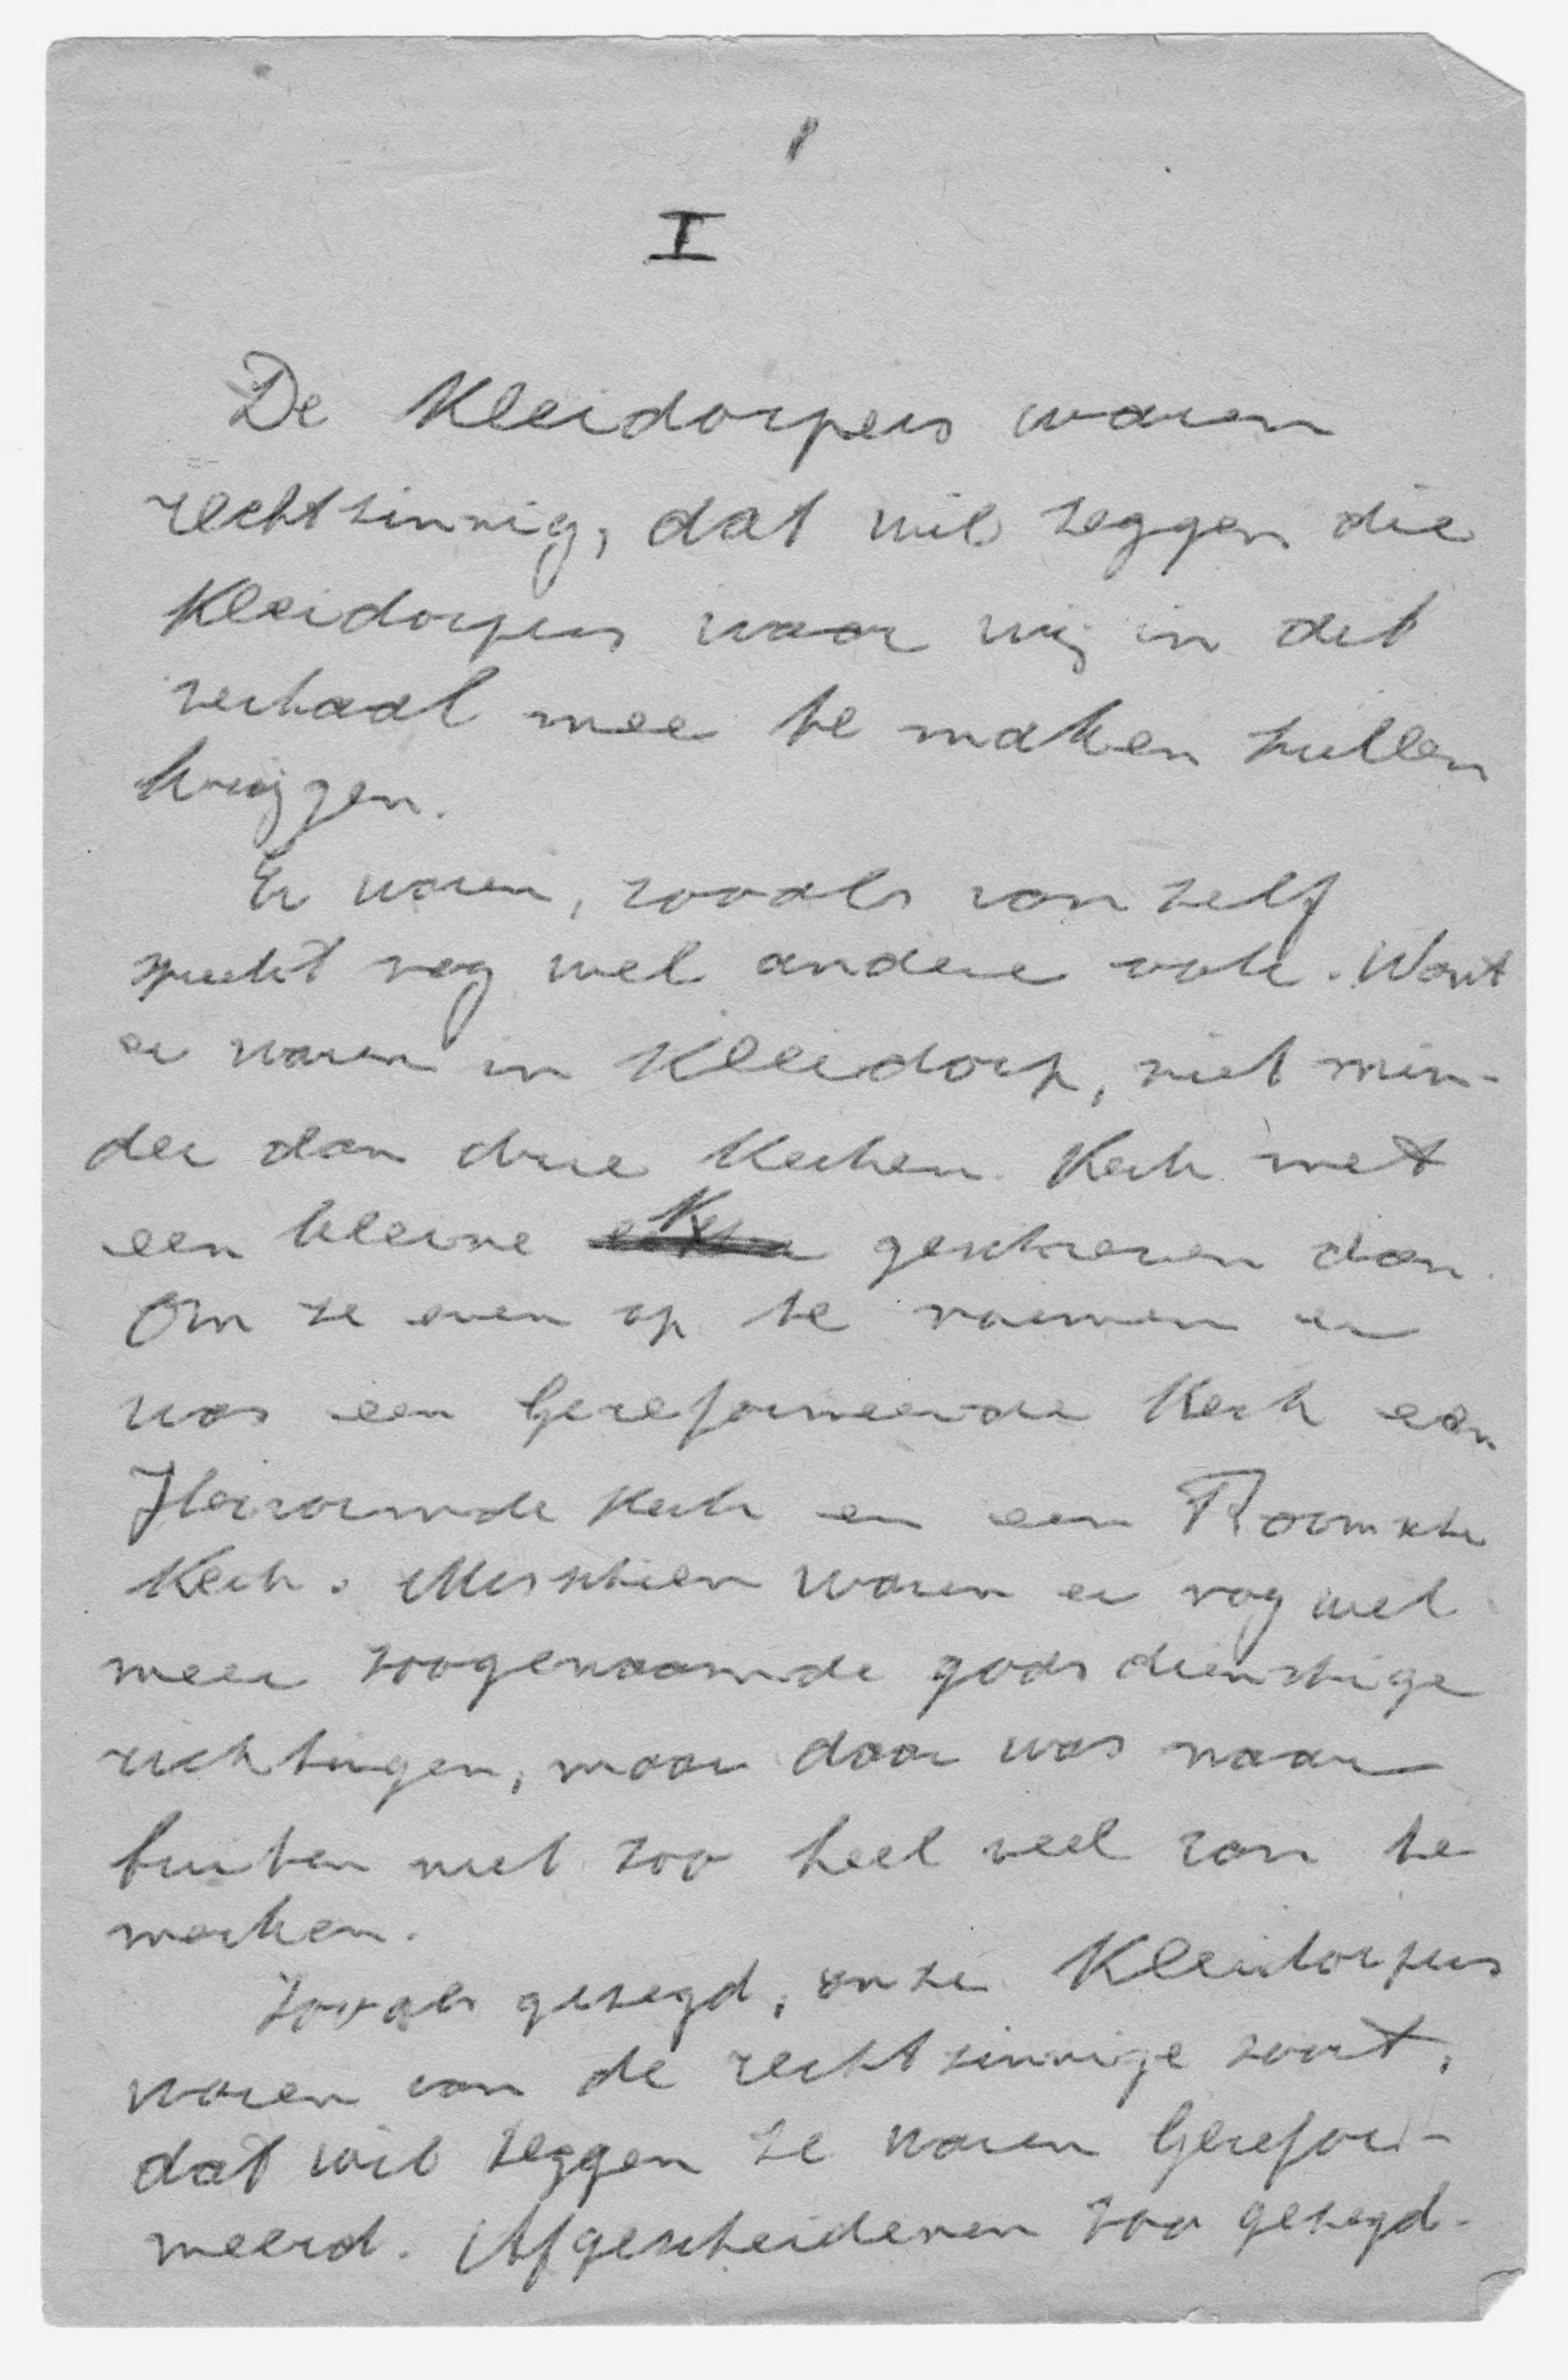 1
I
De Kleidorpers waren
rechtzinnig, dat wil zeggen die
Kleidorpers waar wij in dit
verhaal mee te maken zullen
krijgen.
Er waren, zooals van zelf
spreekt nog wel andere ook. Want
er waren in Kleidorp, niet min-
der dan drie kerken. Kerk met
een kleine K geschreven dan.
Om ze even op te noemen er
was een Gereformeerde Kerk een
Hervormde Kerk en een Roomsche
Kerk. Misschien waren er nog wel
meer zoogenaamde godsdienstige
richtingen, maar daar was naar
buiten niet zoo heel veel van te
merken.
Zooals gezegd, onze Kleidorpers
waren van de rechtzinnige soort,
dat wil zeggen ze waren Gerefor-
meerd. Afgescheidenen zoo gezegd.